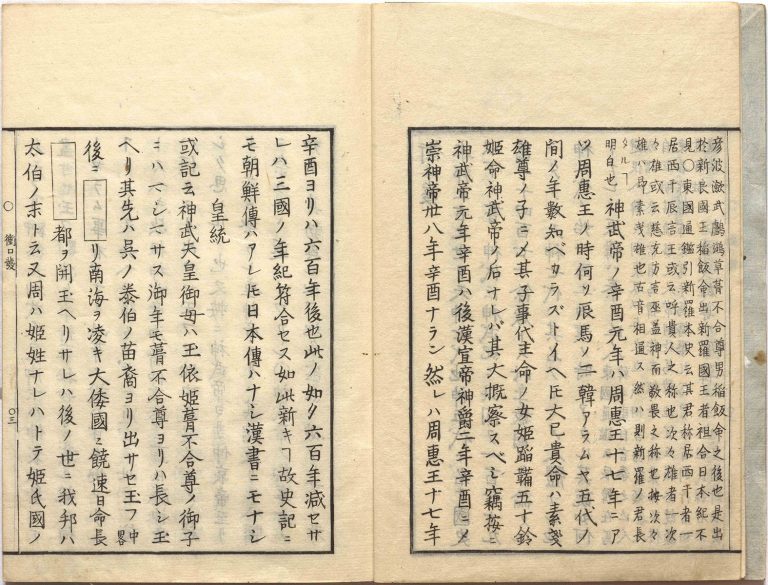 彦波瀲武鸕鷀草葺不合尊男稲飯命之後也是出
於新良國王稲飯命出新羅國王者祖合日本紀不
見〇東國通鑑引新羅本史云其君称居西干者一
居西干辰言王或云呼貴人之称也次々雄者一次
々雄或云慈充方言巫盖神而敬畏之称也按次々
雄ハ即素戔雄也古音相通ス然ハ則新羅ノ君長
タルヿ
明白也
神武帝ノ辛酉元年ハ周惠王十七年ニア
ツ周惠王ノ時何ソ辰馬ノ二韓アラムヤ五代ノ
間ノ年数知ベカラズトイヘ𪜈大己貴命ハ素戔
雄尊ノ子ニメ其子事代主命ノ女姫蹈鞴五十鈴
姫命神武帝ノ后ナレバ其大概察スベシ窺按ニ
神武帝元年辛酉ハ後漢宣帝神爵二年辛酉ニメ
崇神帝卅八年辛酉ナラン然レハ周惠王十七年
辛酉ヨリハ六百年後也此ノ如ク六百年减セサ
レハ三國ノ年紀符合セス如此新キヿ故史記ニ
モ朝鮮傳ハアレ𪜈日本傳ハナシ漢書ニモナシ
皇統
或記云神武天皇御母ハ玉依姫葺不合尊ノ御子
ニハマシマサス御年モ葺不合尊ヨリハ長シ玉
ヘリ其先ハ呉ノ泰伯ノ苗裔ヨリ出サセ玉フ中畧
後ニ リ南海ヲ凌キ大倭國ニ饒速日命長
都ヲ開玉ヘリサレハ後ノ世ニ我邦ハ
太伯ノ末ト云又周ハ姫姓ナレハトテ姫氏國ノ
〇 衝口發 〇三